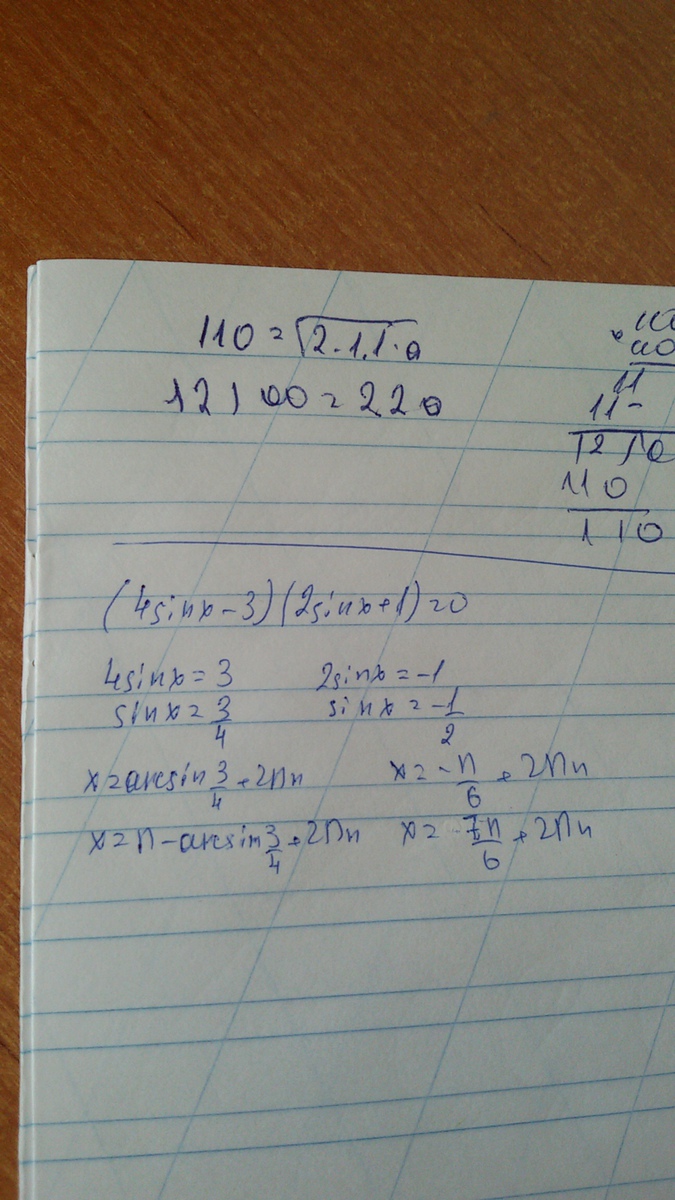 110 = √2.1.1.0
12100 = 2.20
11
11-
1210
110
110
(4sinx-3)(2sinx+1)=0
4sinx=3 2sinx=-1
sinx=3/4 sinx=-1/2
x=arcsin3/4+2Пn x=-П/6+2Пn
x=П-arcsin3/4+2Пn x=-7П/6+2Пn